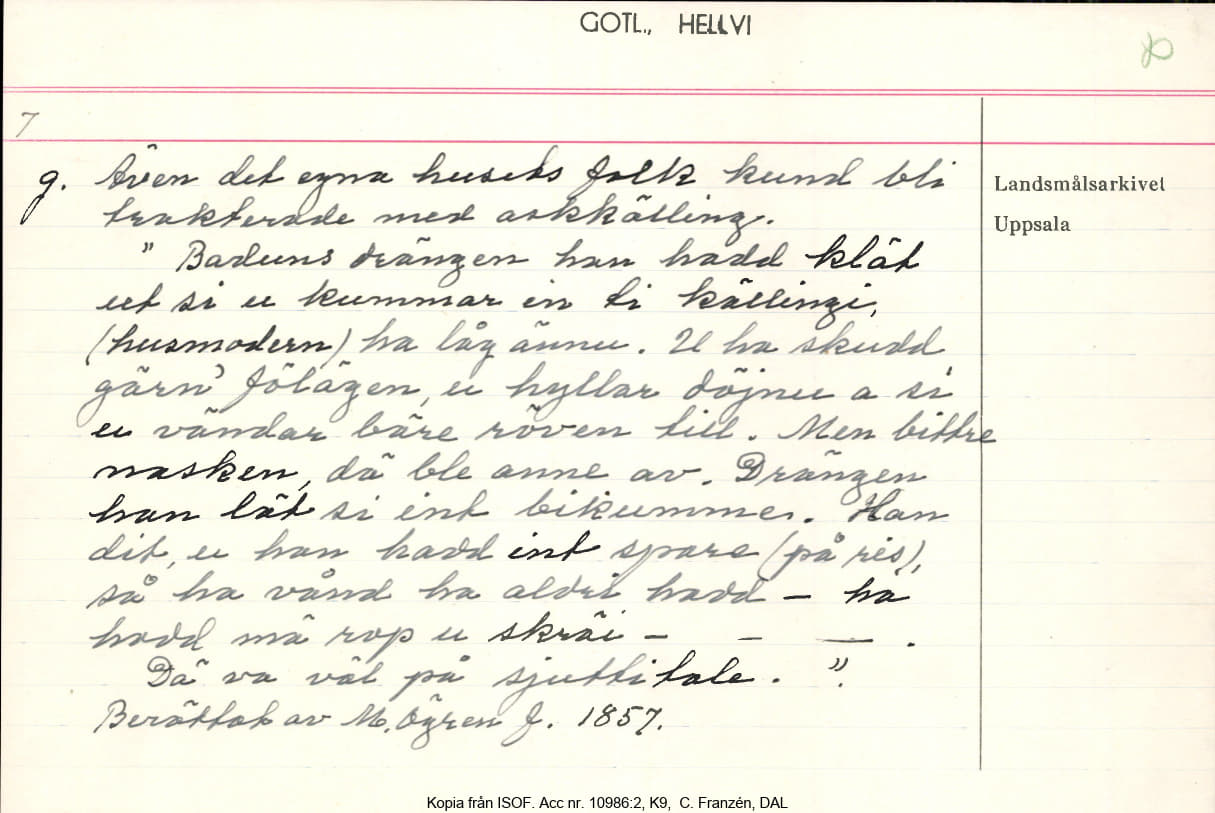 GOTL., HELLVI
7
g. Även det egna husets folk kund bli
trakterade med askkälling.
" Baduns drängen han hadd klät
ut si u kummar in ti källingi,
(husmodern) ha låg ännu. U ha skudd
gärn' fölägen, u hyllar döjnu a si
u vändar bäre röven till. Men bittre
nasken, dä ble anne av. Drängen
han lät si int bikumme. Han
dit, u han hadd int spare (på ris),
så ha vånd ha aldri hadd – ha
hadd mä rop u skräi – – – .
Dä va väl på sjuttitale. ".
Berättat av M. Ögren f. 1857.
Landsmålsarkivet
Uppsala
Kopia från ISOF. Acc nr. 10986:2, K9, C. Franzén, DAL